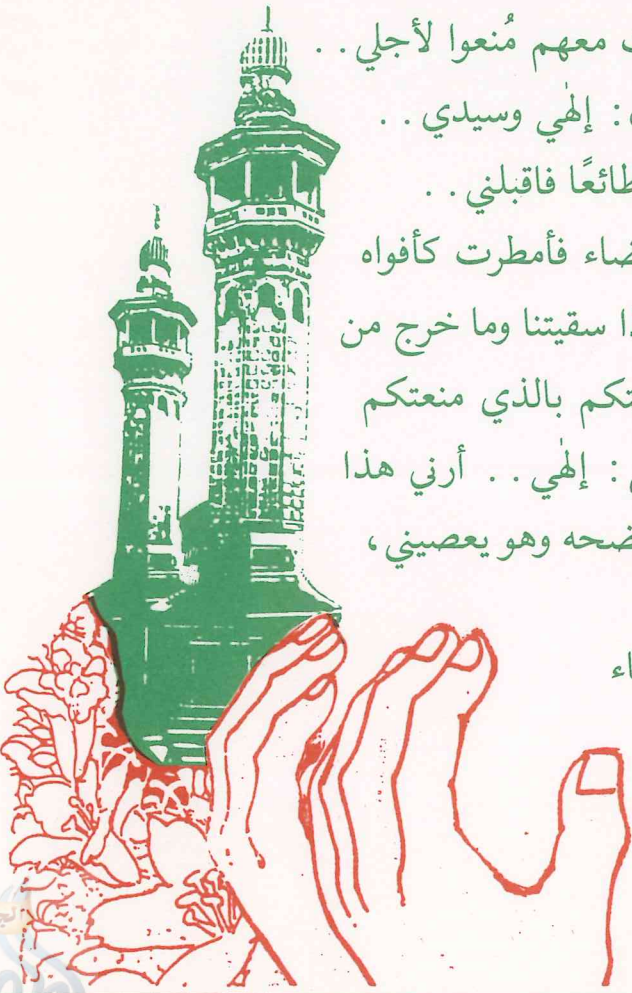 معهم مُنعوا لأجلي . .
: إلهي وسيدي . .
طائعًا فاقبلني . .
فأمطرت كأفواه
سقيتنا وما خرج من
بالذي منعتكم
: إلهي . . أرني هذا
وهو يعصيني ،